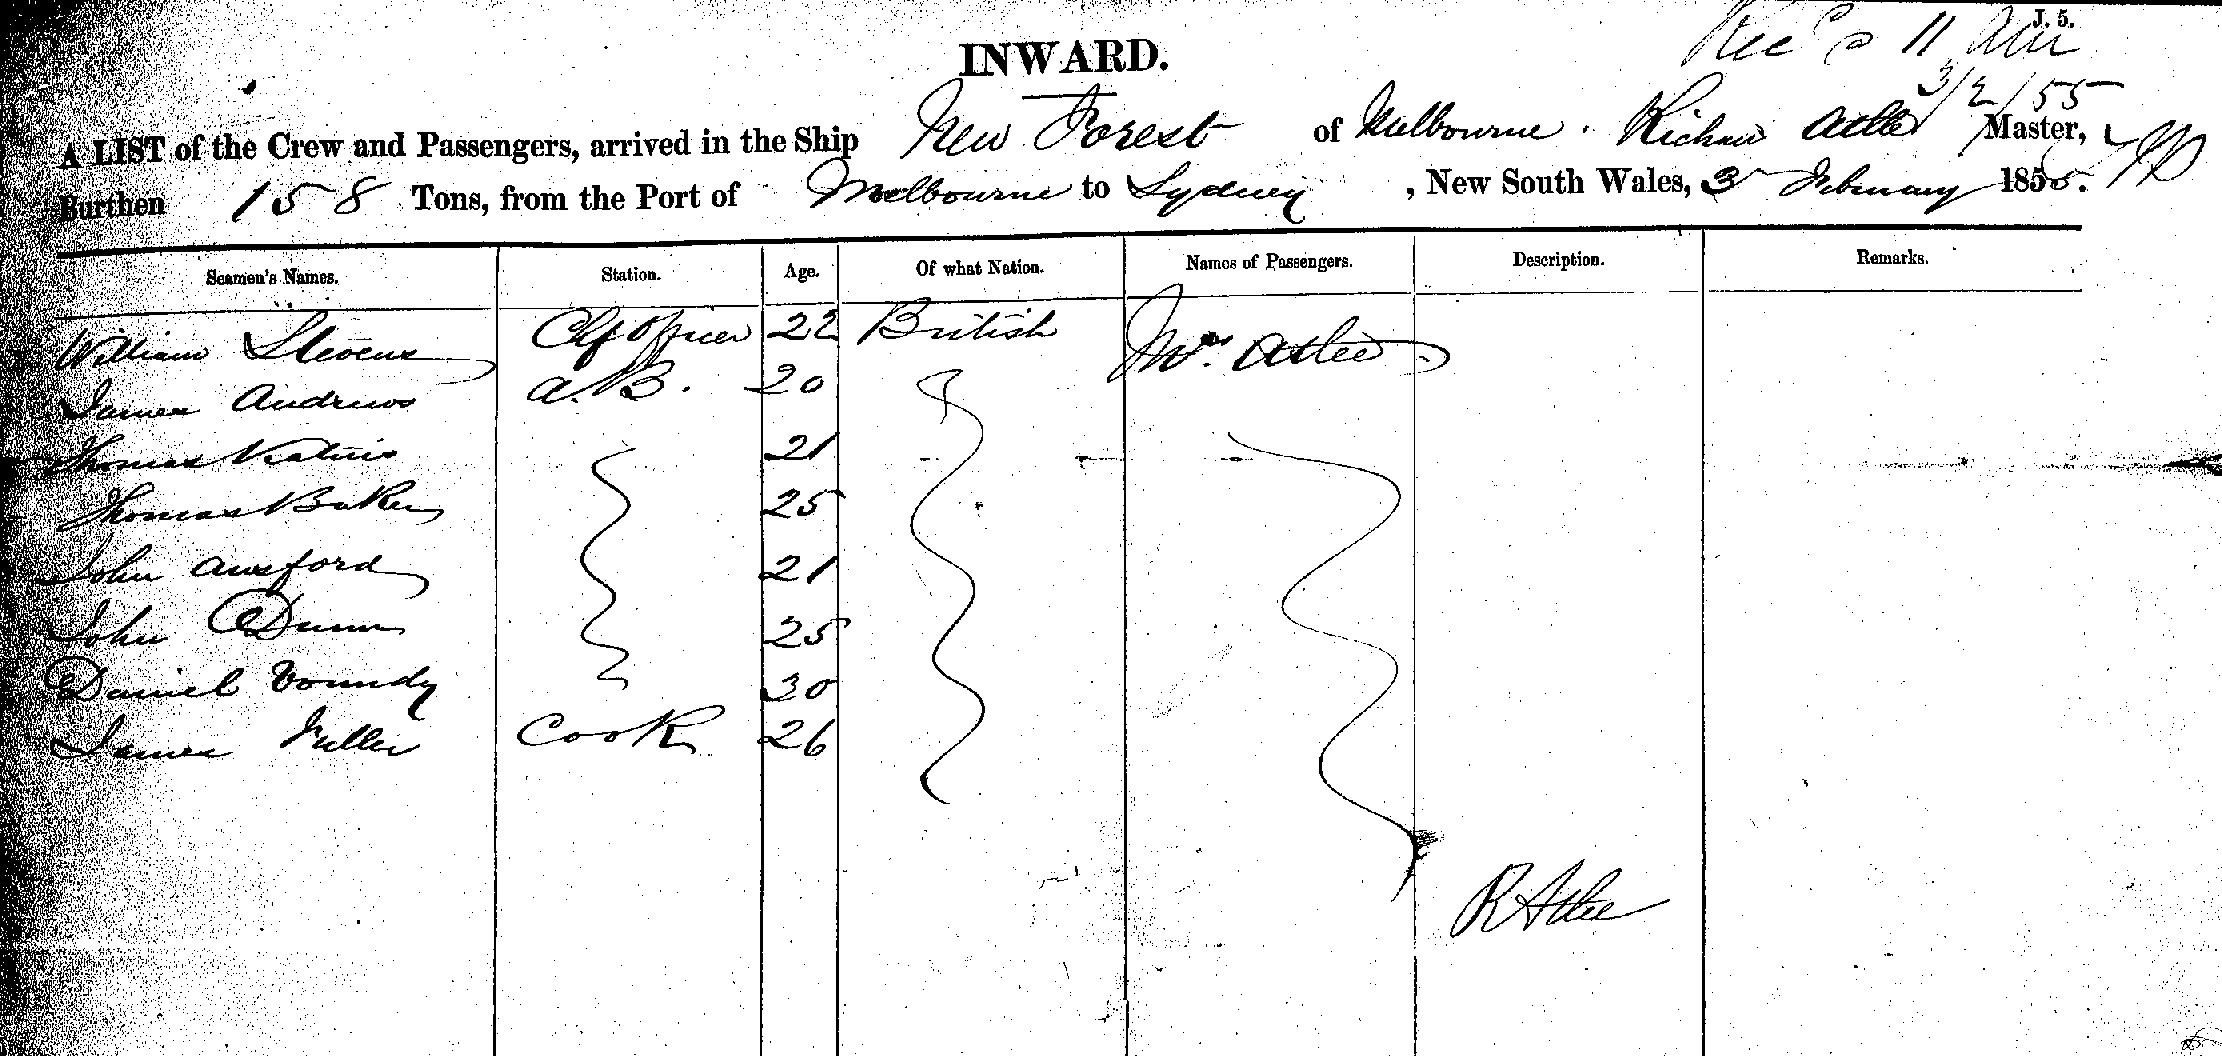 J. 5.
INWARD.
Rec d 11 am
3/2/55
A LIST of the Crew and Passengers, arrived in the Ship New Forest of Melbourne. Atlee Master,
Burthen 158 Tons, from the Port of Melbourne to Sydney, New South Wales, 3 February 1855.
Seamen's Names. Station. Age. Of what Nation. Names of Passengers. Description. Remarks.
William Stevens Officer 22 British Mrs. Atlee
James Andrews A.B. 20
Thomas 21
Thomas Baker 25
John Ausford 21
John 25
Daniel 30
James Fuller Cook 26
R Atlee